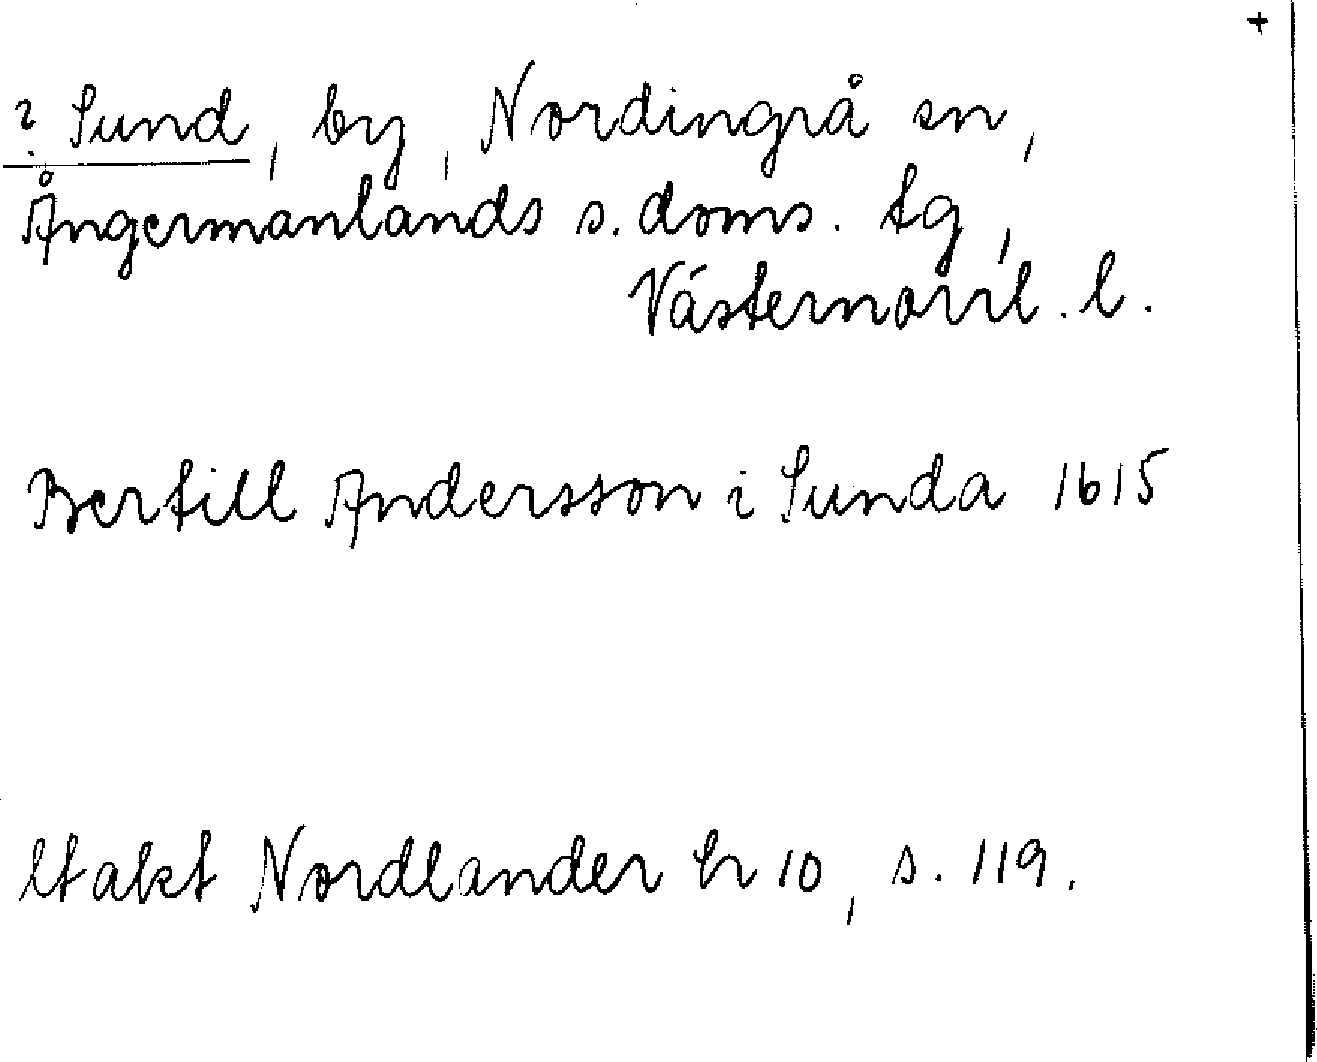 +
? Sund, by, Nordingrå sn,
Ångermanlands s. doms. tg,
Västernorrl. l.
Bertill Andersson i Sunda 1615
Utakt Nordlander hr 10, s. 119.